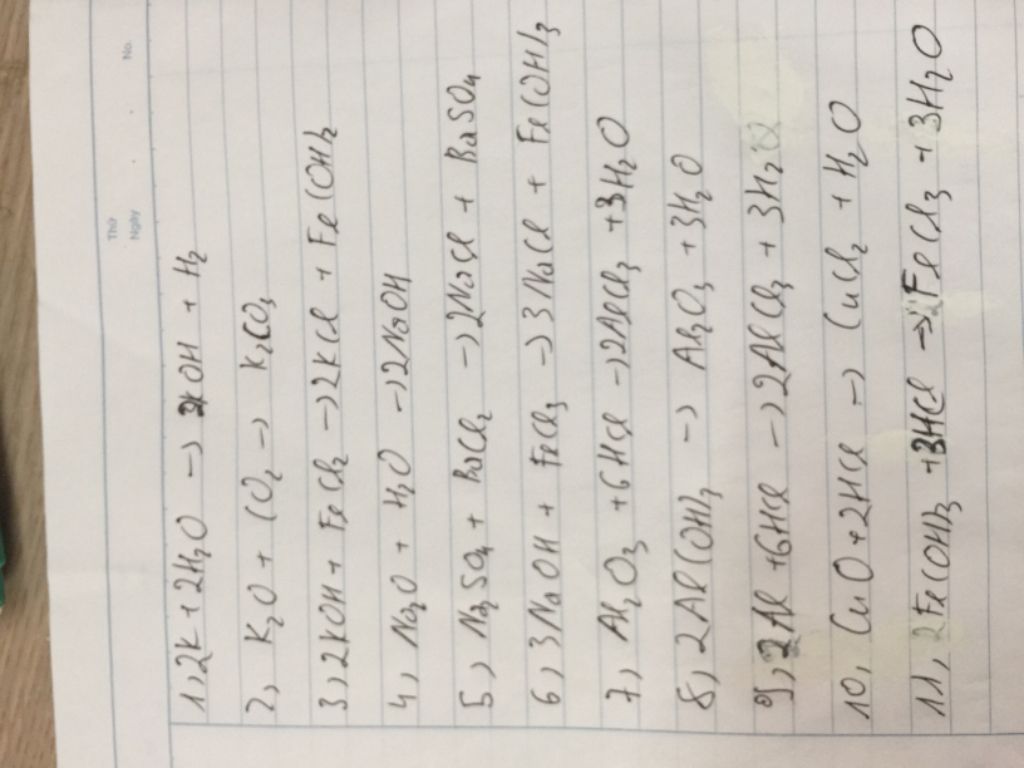 Thứ
Ngày
No.
1, 2K + 2H₂O → 2KOH + H₂
2, K₂O + CO₂ → K₂CO₃
3, 2KOH + FeCl₂ → 2KCl + Fe(OH)₂
4, Na₂O + H₂O → 2NaOH
5, Na₂SO₄ + BaCl₂ → 2NaCl + BaSO₄
6, 3NaOH + FeCl₃ → 3NaCl + Fe(OH)₃
7, Al₂O₃ + 6HCl → 2AlCl₃ + 3H₂O
8, 2Al(OH)₃ → Al₂O₃ + 3H₂O
9, 2Al + 6HCl → 2AlCl₃ + 3H₂
10, CuO + 2HCl → CuCl₂ + H₂O
11, Fe(OH)₃ + 3HCl → FeCl₃ + 3H₂O